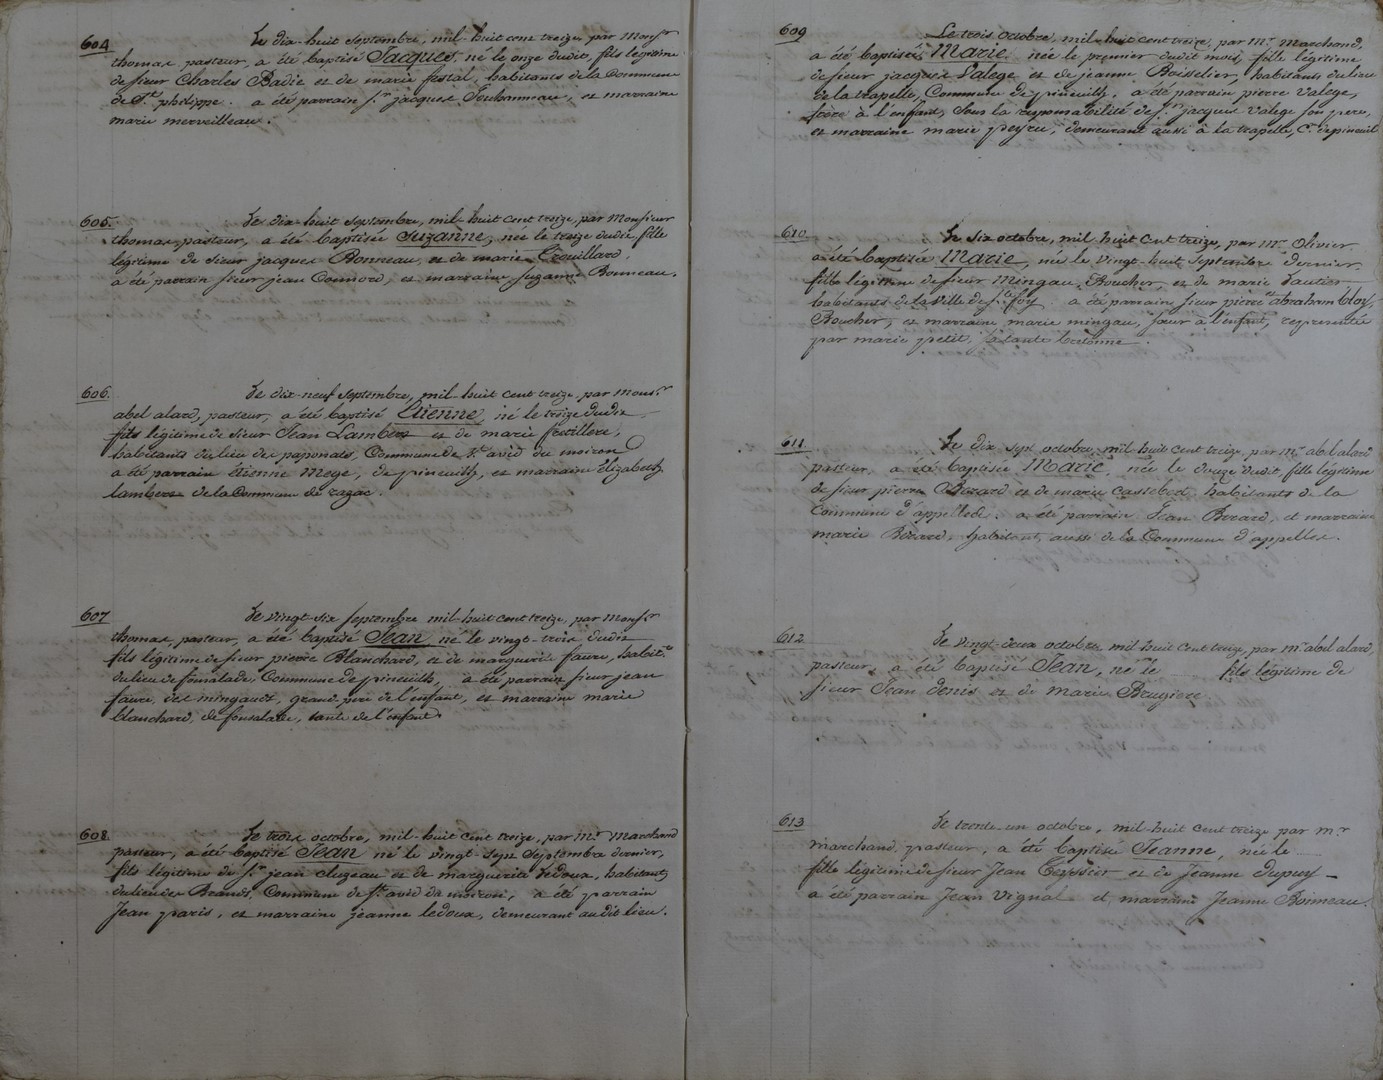 604
Le dix-huit septembre, mil-huit cent treize, par Monsr.
thomas, pasteur, a été baptisé Jacques, né le onze dudit, fils légitime
de sieur Charles Badie et de marie festal, habitants de la Commune
de St. philippe. a été parrain sr. jacques Jouhanneau, et marraine
marie merveilleau.
605.
Le dix-huit septembre, mil-huit cent treize, par Monsieur
thomas, pasteur, a été baptisée Suzanne, née le treize dudit, fille
légitime de sieur jacques Bonneau, et de marie Trouillard.
a été parrain sieur jean Counord, et marraine suzanne Bonneau.
606.
Le dix-neuf septembre, mil-huit cent treize, par Monsr.
abel alard, pasteur, a été baptisé Etienne, né le treize dudit
fils légitime de sieur Jean Lambert et de marie fretillere,
habitants du lieu des paponats, Commune de St. avid du moiron
a été parrain Etienne Mege, de pineuilh, et marraine Elizabeth
lambert de la Commune de razac.
607
Le vingt-six septembre mil-huit cent treize, par Monsr.
thomas, pasteur, a été baptisé Jean né le vingt-trois dudit
fils légitime de sieur pierre Blanchard, et de marguerite faure, habitts.
du lieu de fonsalade, Commune de pineuilh, a été parrain sieur jean
faure, des mingauds, grand-pere de l'enfant, et marraine marie
blanchard, de fonsalade, tante de l'enfant.
608.
Le trois octobre, mil-huit cent treize, par Mr. Marchand
pasteur, a été baptisé Jean né le vingt-sept septembre dernier,
fils légitime de sr. jean cluzeau et de marguerite Ledoux, habitants
du lieu de Brands, Commune de St. avid du moiron, a été parrain
Jean paris, et marraine jeanne ledoux, demeurant audit lieu.
609
Le trois octobre, mil-huit cent treize, par Mr. Marchand,
a été baptisée Marie née le premier dudit mois, fille légitime
de sieur jacques Valege et de jeanne Boisselier, habitants du lieu
de la trapelle, Commune de pineuilh, a été parrain pierre Valege,
frère à l'enfant, sous la responsabilité de sr. jacques valege son pere,
et marraine marie peyru, demeurant aussi à la trapelle, Ce. de pineuil
610
Le six octobre, mil huit cent treize, par Mr. Olivier
a été baptisée Marie, née le vingt-huit septembre dernier.
fille légitime de sieur Mingau, Boucher, et de marie Gautier
habitants de la ville de Ste. foy. a été parrain sieur pierre abraham bloy,
Boucher, et marraine marie mingau, sœur à l'enfant, representée
par marie petit, sa tante bretonne.
611
Le dix sept octobre, mil huit cent treize, par Mr. abel alard
pasteur, a été baptisée Marie, née le douze dudit, fille légitime
de sieur pierre Berard et de marie Castebert habitants de la
Commune d'appelles. a été parrain Jean Berard, et marraine
marie Berard, habitant aussi de la Commune d'appelles.
612
Le vingt-deux octobre, mil huit cent treize, par Mr. abel alard,
pasteur, a été baptisé Jean, né le fils légitime de
sieur Jean denis et de marie Brugiere
613
Le trente-un octobre, mil-huit cent treize par mr.
marchand, pasteur, a été baptisé Jeanne, née le
fille légitime de sieur Jean Teyssier et de Jeanne Dupuy
a été parrain Jean Vignal et marraine Jeanne Boineau.